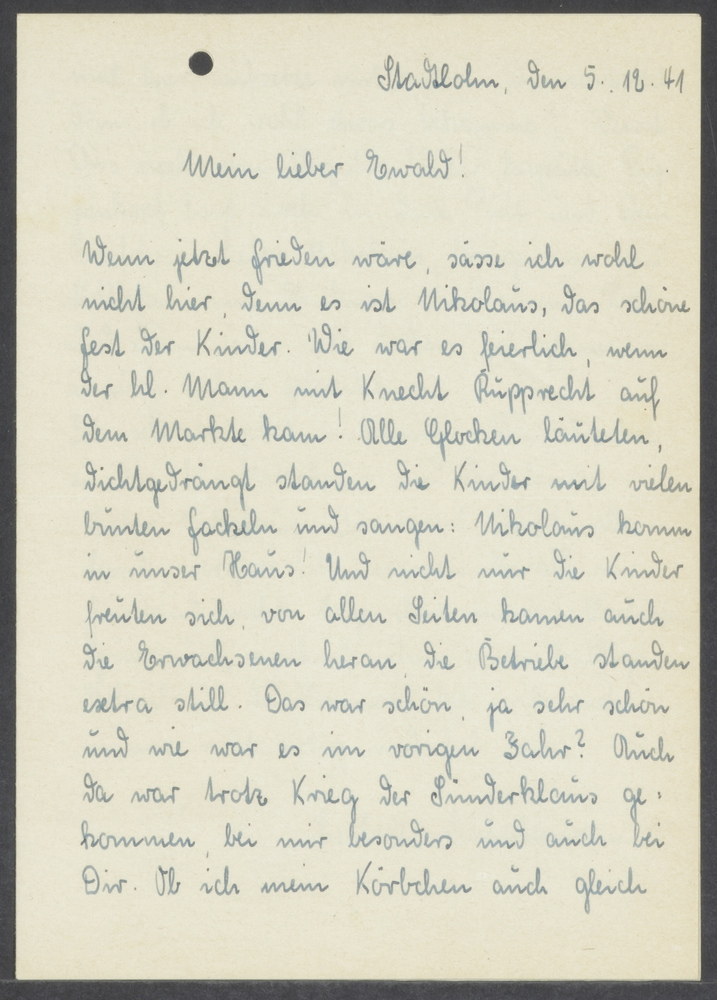 Stadtlohn, den 5. 12. 41
Mein lieber Ewald!
Wenn jetzt Frieden wäre, sässe ich wohl
nicht hier, denn es ist Nikolaus, das schöne
Fest der Kinder. Wie war es feierlich, wenn
der hl. Mann mit Knecht Rupprecht auf
dem Markte kam! Alle Glocken läuteten,
dichtgedrängt standen die Kinder mit vielen
bunten Fackeln und sangen: Nikolaus komm
in unser Haus! Und nicht nur die Kinder
freuten sich, von allen Seiten kamen auch
die Erwachsenen heran, die Betriebe standen
extra still. Das war schön, ja sehr schön
und wie war es im vorigen Jahr? Auch
da war trotz Krieg der Sünderklaus ge-
kommen, bei mir besonders und auch bei
Dir. Ob ich mein Körbchen auch gleich